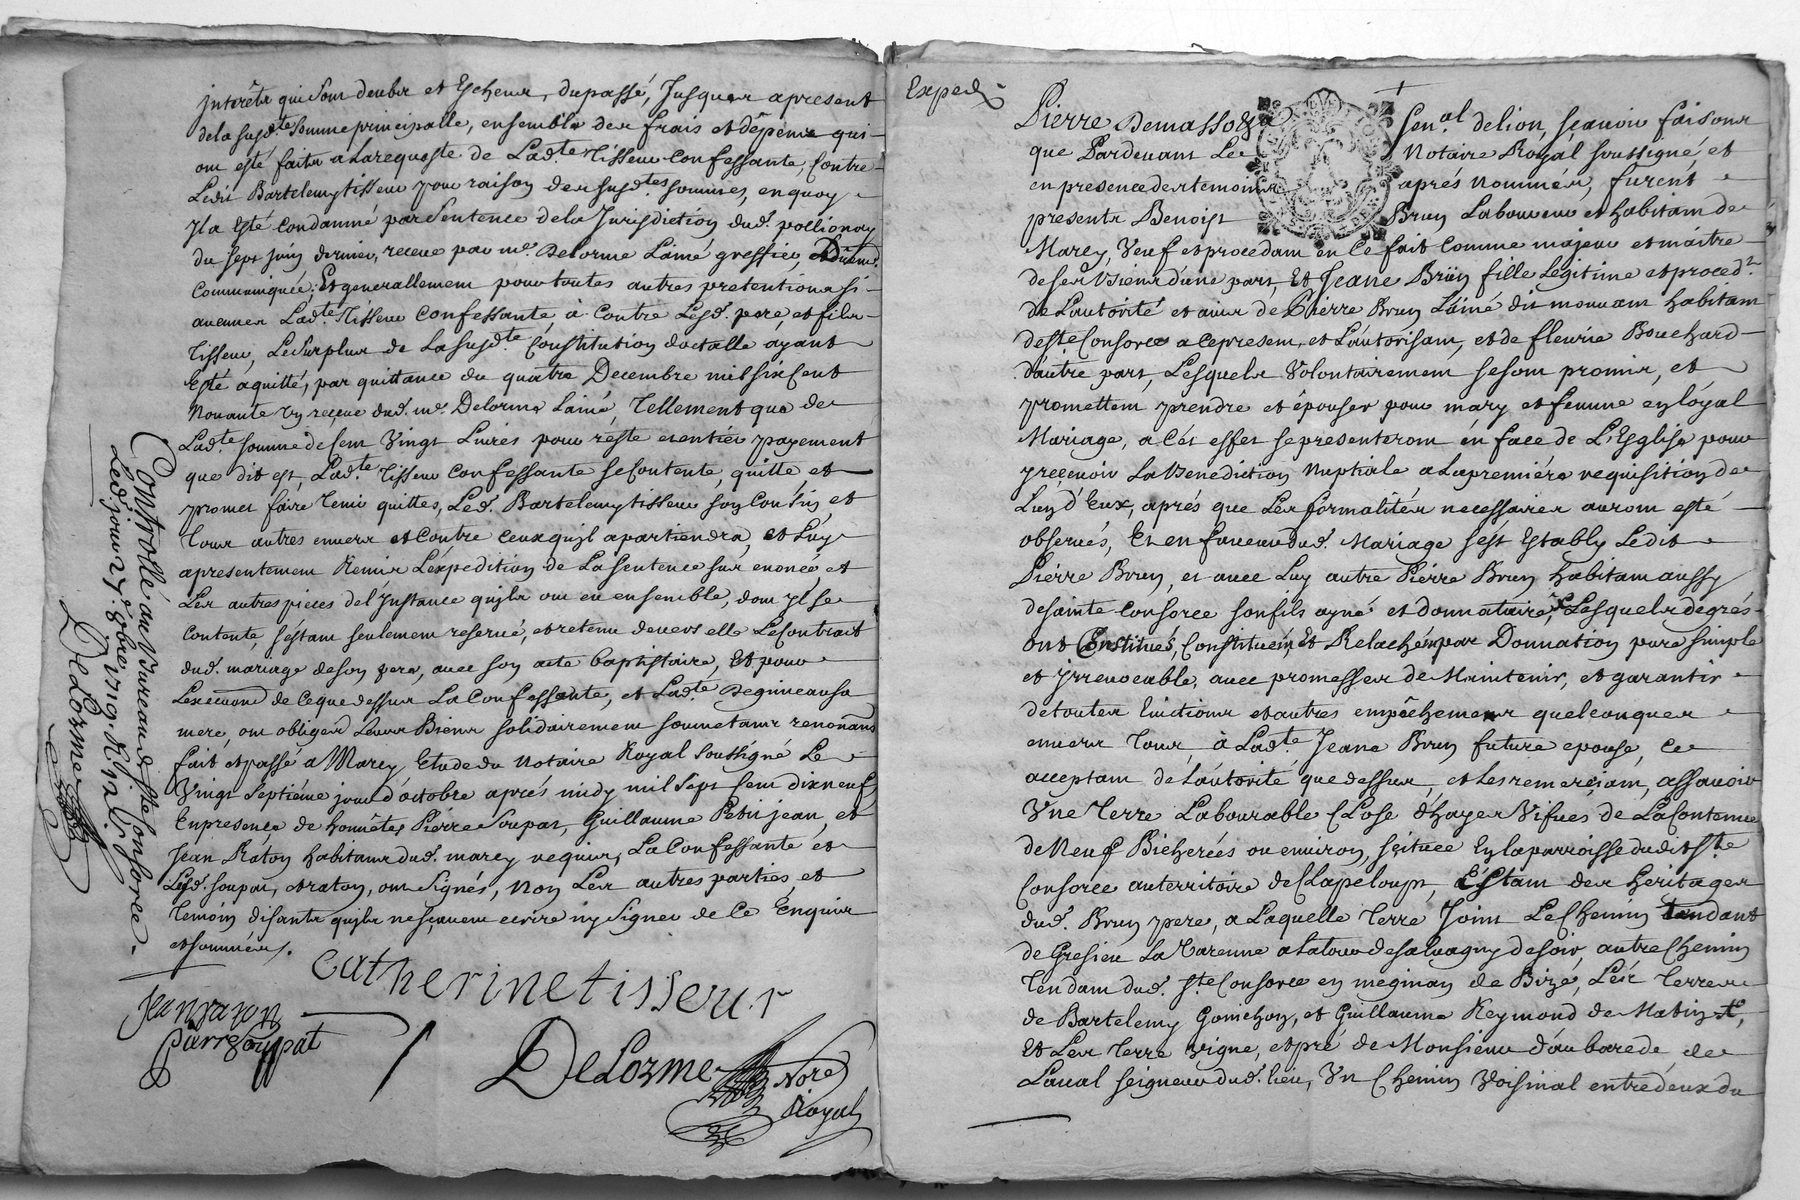 jnterêts qui sont deubs et Escheus, du passé, Jusques apresent
dela susd.te somme principalle, ensemble des frais et dépens qui
ont esté faits a la requeste de Lad.te Tisseur Confessante, Contre
Ledit Bartelemy tisseur pour raison des susd.tes sommes, en quoy
jl a esté Condamné par Sentence dela Jurisdiction dud. pollionay
du sept juin dernier, receue par me. Delorme L'ainé greffier,
Communiquée; Et generallement pour toutes autres pretentions si
aucunes Lad.te Tisseur Confessante à Contre Lesd. pere, et fils
Tisseur, Le Surplus de La susd.te Constitution dotalle ayant
Esté aquitté, par quittance du quatre Decembre mil six Cent
Nonante Un reçeue dud. me. Delorme L'ainé, Tellement que de
Lad.te somme de Cent Vingt Livres pour réste et entier payement
que dit est, Lad.te Tisseur Confessante se Contente, quitte, et
promet faire tenir quittes, Led. Bartelemy tisseur son Cousin et
Tous autres envers et Contre Ceux qu'jl apartiendra, et Luy
a presentement Remis L'expedition de La Sentence sus enoncé, et
Les autres pieces de l'Instance qu'jls ont eu ensemble, dont jl se
Contente, s'éstant seulement reservé, et retenu devers elle Le Contrait
dud. mariage de son pere, avec son acte baptistaire, Et pour
L'execution de Ce que dessus La Confessante, et Lad.te Degimeau sa
mere, ont obligés Leurs Biens solidairement soumetants renonçants
fait et passé a Marcy Etude du Notaire Royal soussigné Le
Vingt Septiéme jour d'octobre aprés midy mil sept Cent dix neuf,
En presençe de honnêtes Pierre Soupat, Guillaume Petitjean, et
Jean Raton habitans dud. marcy requis, La Confessante et
Lesd. soupat, et raton, ont signés, Non Les autres parties, et
Temoin disants qu'jls ne sçavent ecrire ny signer de Ce Enquis
et sommés.
Catherine tisseur
Jean raton
Pierre Soupat
DeLorme Nore
Royal
Controllé au Bureau de Ste Consorce
Led. jour 27.e 8bre 1719. R.
DeLorme
Exped.
Pierre Demasso
Sen.al de lion, sçavoir faisons
que Pardevant Le Notaire Royal soussigné, et
en presence des temoins aprés Nommés, furent
presents Benoist Brun Laboureur et habitant de
Marcy, Veuf et procedant en Ce fait Comme majeur et maitre
de ses Biens d'une part, Et Jeane Brun fille Legitime et proced.te
de L'autorité et avis de Pierre Brun L'ainé dit mouvant habitant
de Ste Consorce a Ce present, et L'autorisant, et de fleurie Bouchard
d'autre part, Lesquels Volontairement se sont promis, et
promettent prendre et épouser pour mary et femme en loyal
Mariage, a Cét effet se presenteront en face de L'Eglise pour
y reçevoir La Benediction Nuptiale a La premiére requisition de
L'un d'Eux, aprés que Les formalités necessaires auront esté
observés, Et en faveur dud. Mariage s'ést Estably Ledit
Pierre Brun, et avec Luy autre Pierre Brun habitant aussy
de sainte Consorce son fils ayné et donnataire, Lesquels de grés
ont Constitués, Constituent, Et Relachent par Donnation pure simple
et jrrevocable, avec promesses de Maintenir, et garantir
de toutes Evictions et autres empêchemens quelconques
envers Tous, à Lad.te Jeane Brun future epouse, Ce
acceptant de L'autorité que dessus, et Les remerçiant, assavoir
Vne Terre Labourable Close d'hayes Vifves de La Contenue
de Neuf Bicherées ou environ, sçituée En la parroisse dudit Ste
Consorce au territoire de Chapeloup, Estant des heritages
dud. Brun pere, a Laquelle Terre Joint Le Chemin tendant
de Gresieu La Varenne a la tour de salvagny de soir, autre Chemin
Tendant dud. Ste Consorce en meginan de Bizé, Les Terres
de Bartelemy Gonichon, et Guillaume Reymond de Matin,
Et Les Terre vigne, et pré de Monsieur d'aubarede de
Laval seigneur dud. lieu, Vn Chemin Voisinal entre deux du